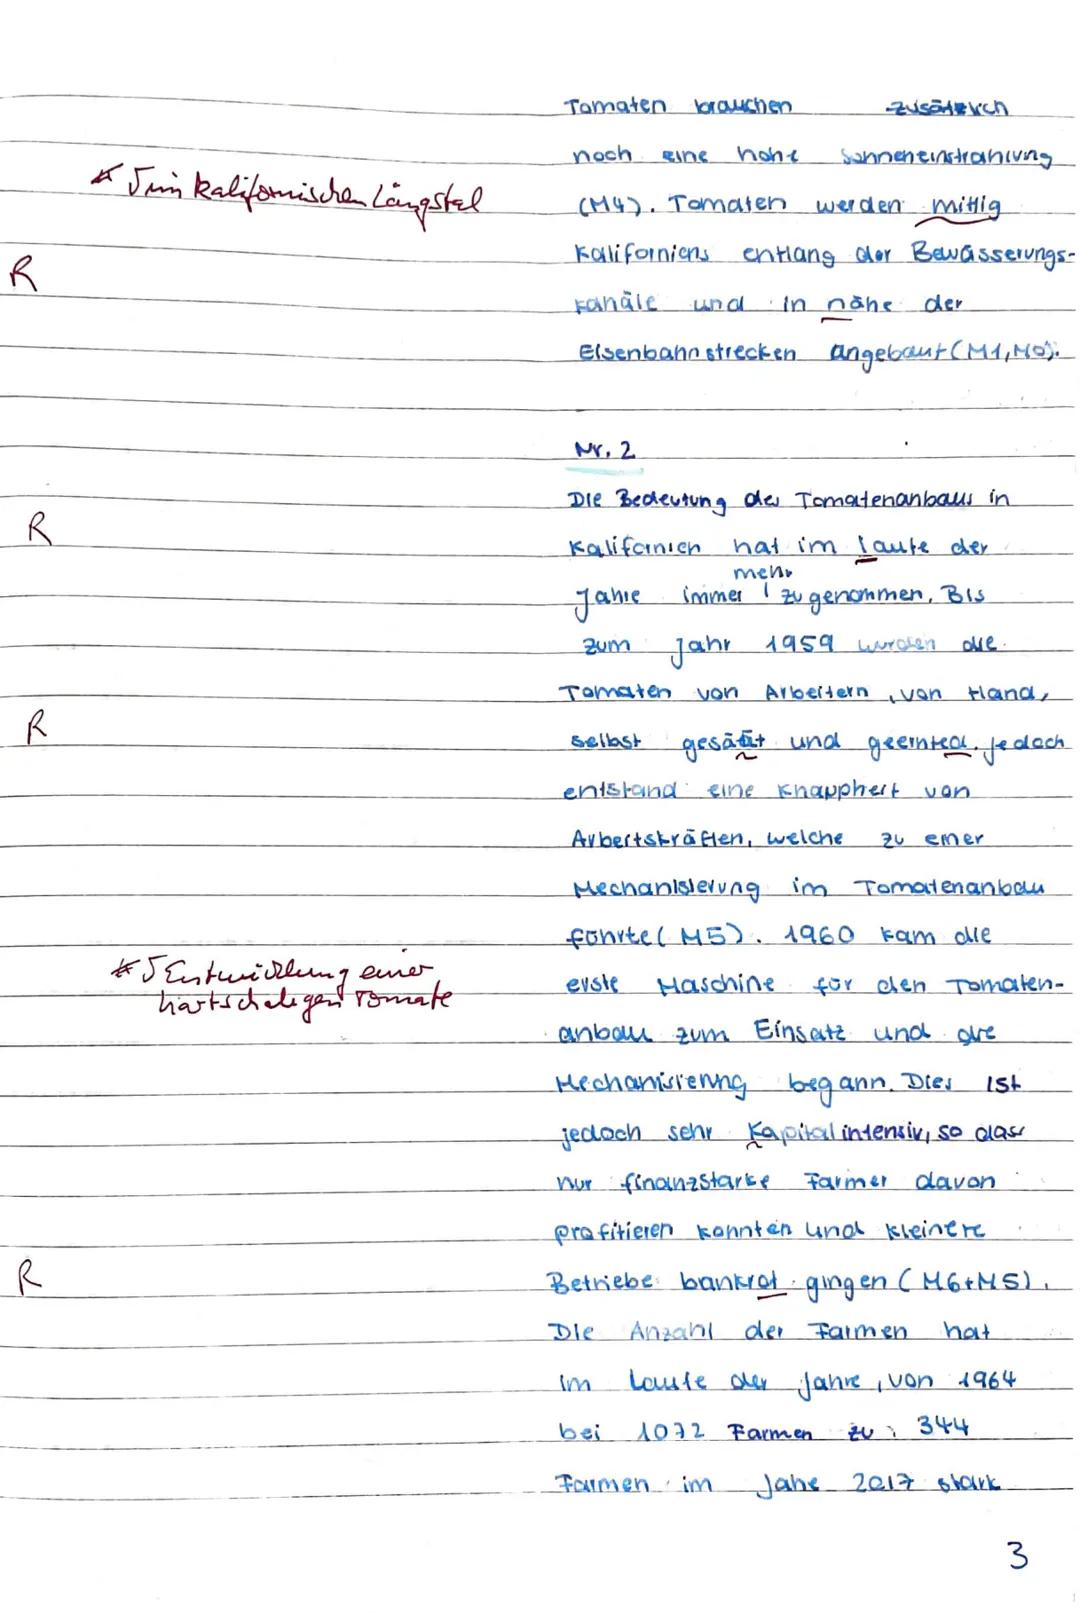 Tomaten brauchen zusätzlich
noch eine hohe Sonneneinstrahlung
* √ im kalifornischen Längstal
(M4). Tomaten werden mittig
R
Kaliforniens entlang der Bewässerungs-
kanäle und in nähe der
Eisenbahnstrecken angebaut (M1, M0).
Nr. 2
Die Bedeutung des Tomatenanbaus in
R
Kalifornien hat im laufe der
mehr
Jahre immer zugenommen. Bis
zum Jahr 1959 wurden die
Tomaten von Arbeitern, von Hand,
R
selbst gesäät und geernted. jedoch
entstand eine Knappheit von
Arbeitskräften, welche zu einer
Mechanisierung im Tomatenanbau
führte (M5). 1960 kam die
* √ Entwicklung einer
hartschaligen Tomate
erste Maschine für den Tomaten-
anbau zum Einsatz und die
Mechanisierung begann. Dies ist
jedoch sehr Kapitalintensiv, so dass
nur finanzstarke Farmer davon
profitieren konnten und kleinere
R
Betriebe bankrot gingen (M6+M5).
Die Anzahl der Farmen hat
im Laufe der Jahre, von 1964
bei 1072 Farmen zu 344
Farmen im Jahe 2017 stark
3